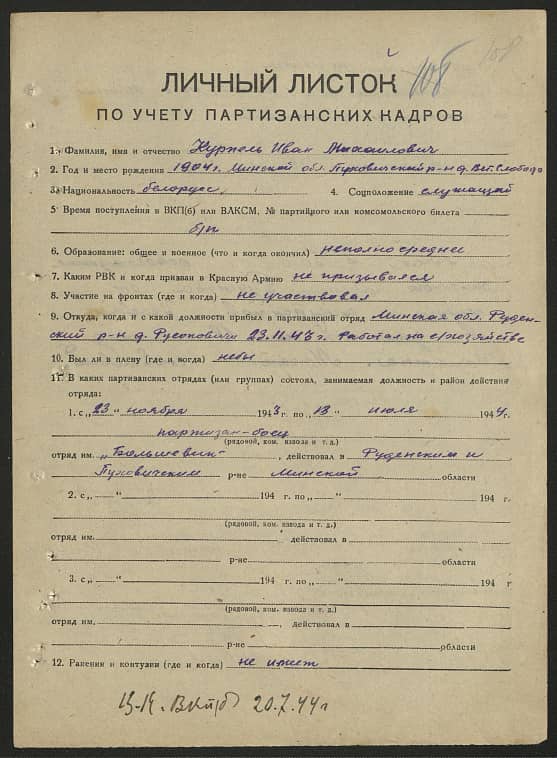 108
108
ЛИЧНЫЙ ЛИСТОК
ПО УЧЕТУ ПАРТИЗАНСКИХ КАДРОВ
1. Фамилия, имя и отчество Курпель Иван Михайлович
2. Год и место рождения 1904 г. Минской обл. Пуховичский р-н д. Вет. Слобода
3. Национальность белорусс 4. Соцположение служащий
5 Время поступления в ВКП(б) или ВЛКСМ, № партийного или комсомольского билета
б/п
6. Образование: общее и военное (что и когда окончил) неполносреднее
7. Каким РВК и когда призван в Красную Армию не призывался
8. Участие на фронтах (где и когда) не участвовал
9. Откуда, когда и с какой должности прибыл в партизанский отряд Минская обл. Руден-
ский р-н д. 23.11.43 г. Работал на с/хозяйстве
10. Был ли в плену (где и когда) небы
11. В каких партизанских отрядах (или группах) состоял, занимаемая должность и район действия
отряда:
1. с „23“ ноября 1943 г. по „13“ июля 1944 г.
партизан-боец
(рядовой, ком. взвода и т. д.)
отряд им. „Большевик“, действовал в Руденским и
Пуховичским р-не Минской области
2. с „ “ 194 г. по „ “ 194 г.
(рядовой, ком. взвода и т. д.)
отряд им. действовал в
р-не области
3. с „ “ 194 г. по „ “ 194 г
(рядовой, ком. взвода и т. д.)
отряд им. , действовал в
р-не области
12. Ранения и контузии (где и когда) не имеет
Ц-К. ВКП(б) 20.7.44 г